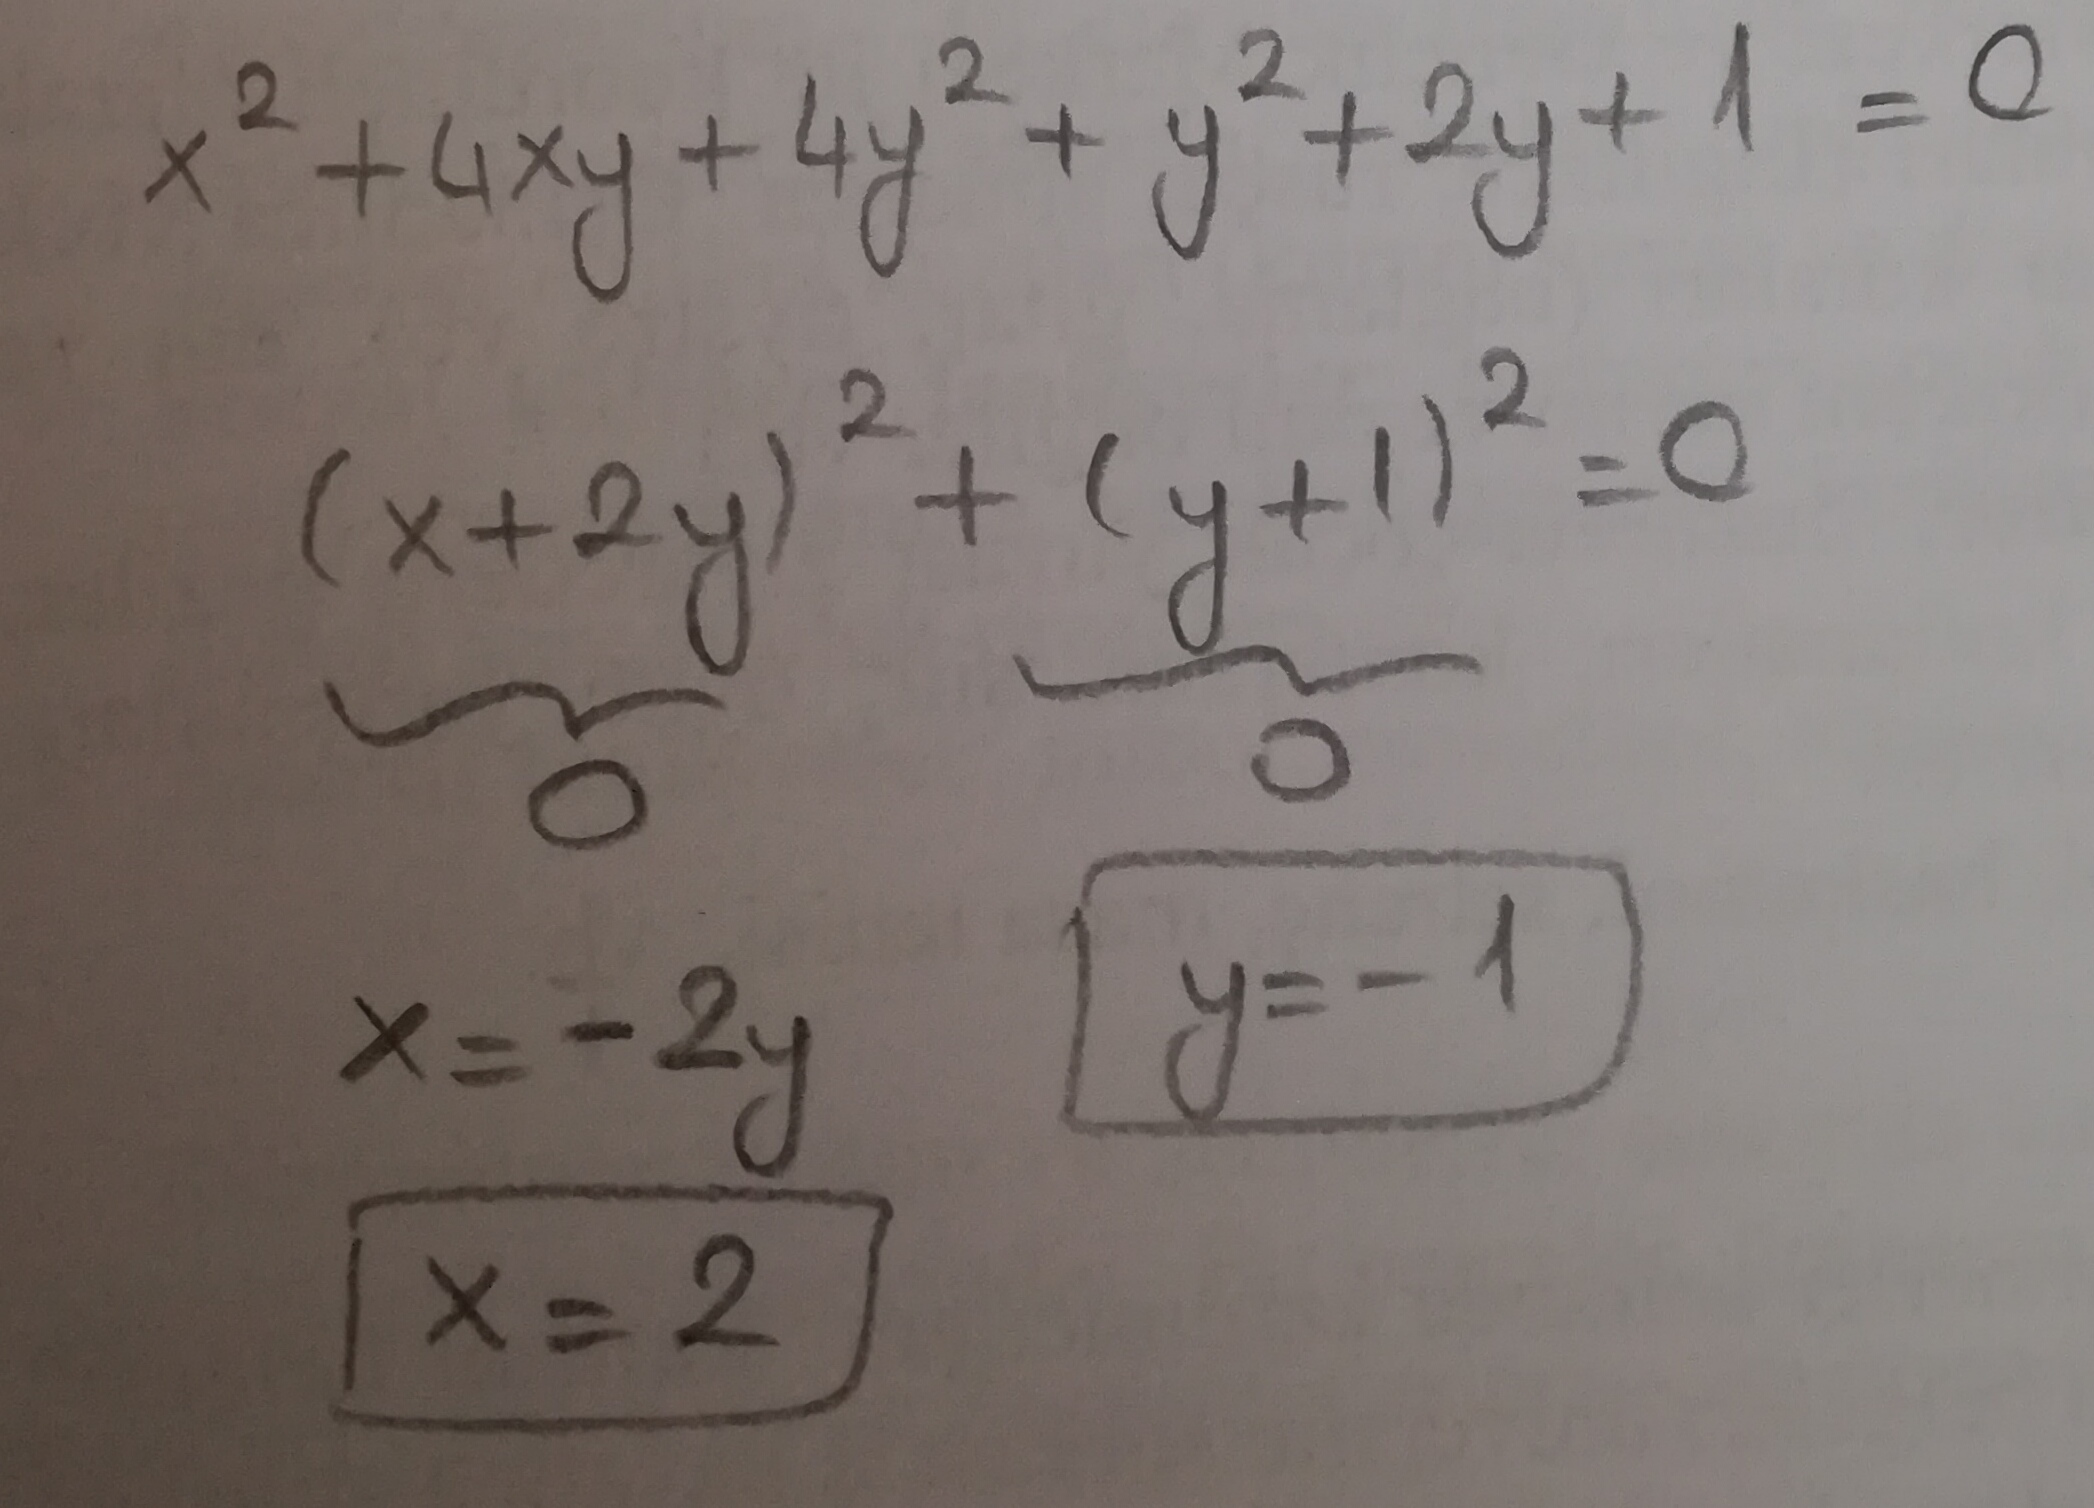 x² + 4xy + 4y² + y² + 2y + 1 = 0
(x + 2y)² + (y + 1)² = 0
0 0
x = - 2y y = - 1
x = 2